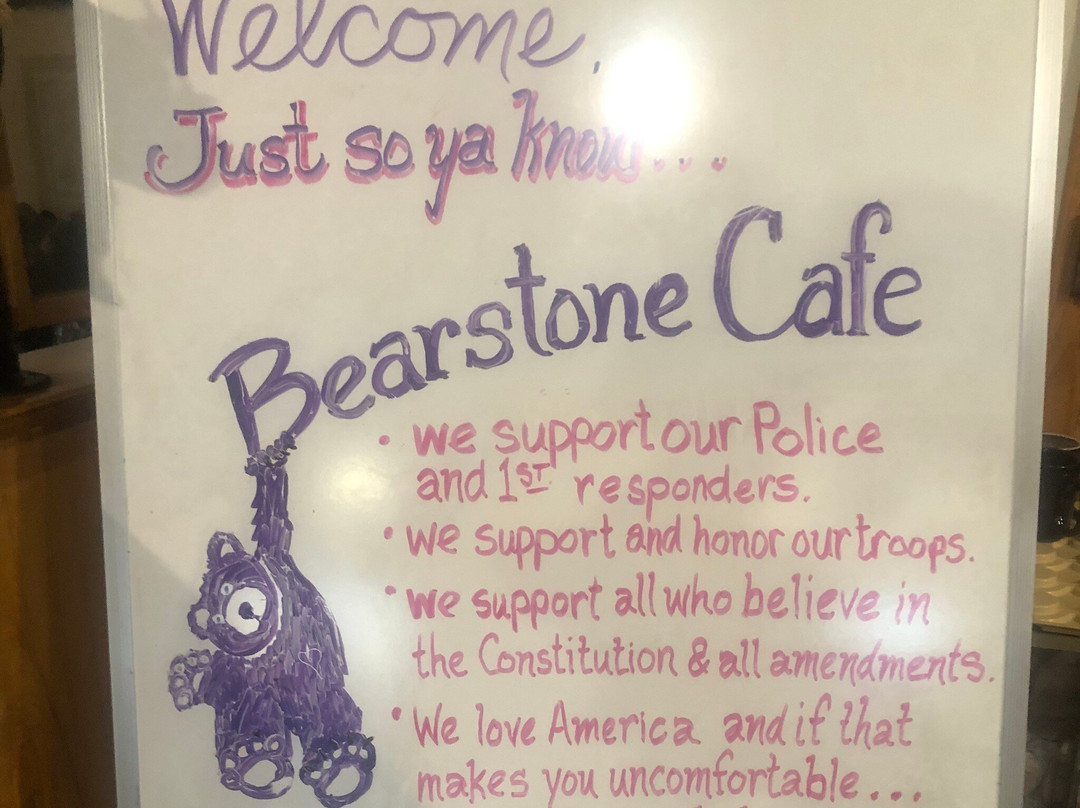 Welcome,
Just so ya know...
Bearstone Cafe
• we support our Police
and 1ST responders.
• we support and honor our troops.
• we support all who believe in
the Constitution & all amendments.
• We love America and if that
makes you uncomfortable...